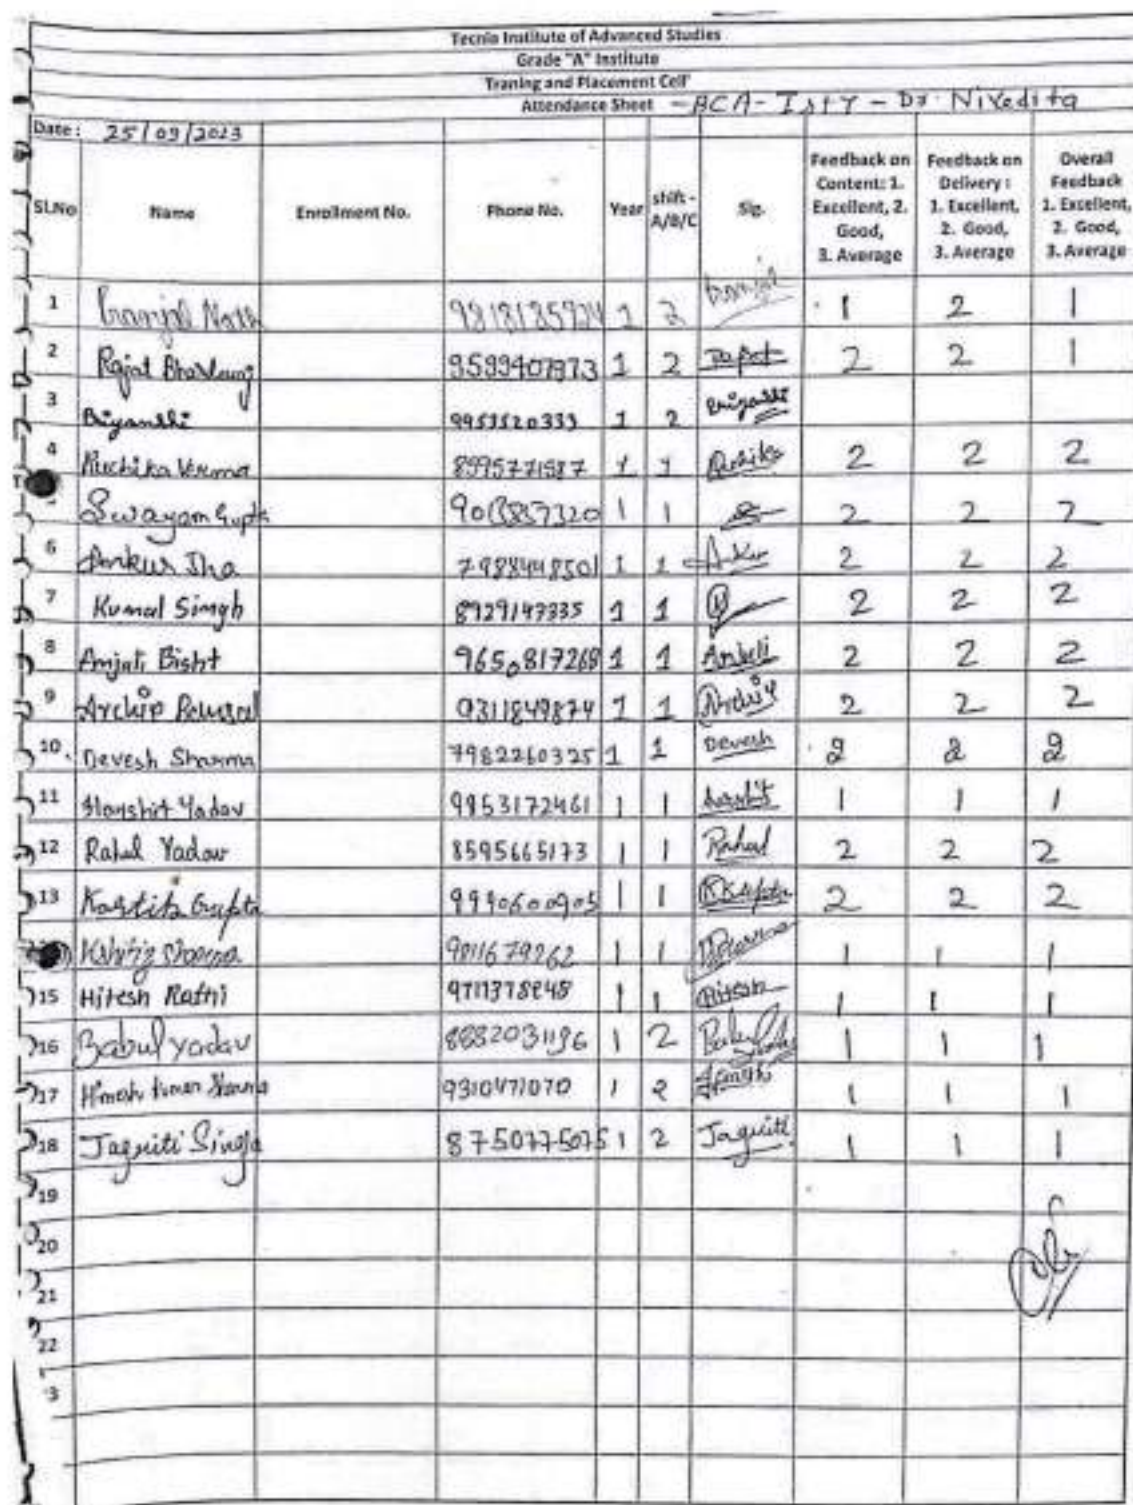 Tecnia Institute of Advanced Studies
Grade "A" Institute
Traning and Placement Cell
Attendance Sheet - BCA - Ist Y - Dr. Nivedita
Date: 25/09/2023
SLNo Name Enrollment No. Phone No. Year shift - A/B/C Sig. Feedback on Content: 1. Excellent, 2. Good, 3. Average Feedback on Delivery : 1. Excellent, 2. Good, 3. Average Overall Feedback 1. Excellent, 2. Good, 3. Average
1 1 2 1 2 1
2 Rajat 9599407973 1 2 2 2 1
3 9953520333 1 2
4 Ruchika Verma 1 1 Ruchika 2 2 2
Swayam Gupta 1 1 2 2 2
6 Ankur Jha 7988448501 1 1 Ankur 2 2 2
7 Kumal Singh 8929147335 1 1 2 2 2
8 Anjali Bisht 9650817268 1 1 Anjali 2 2 2
9 9311849874 1 1 2 2 2
10 Devesh Sharma 7982260325 1 1 Devesh 2 2 2
11 Harshit Yadav 9953172461 1 1 Harshit 1 1 1
12 Rahul Yadav 8595665173 1 1 Rahul 2 2 2
13 Kartik Gupta 9990600905 1 1 2 2 2
Kshitiz Sharma 9811679262 1 1 Sharma 1 1 1
15 Hitesh Rathi 1 1 Hitesh 1 1 1
16 Babul yadav 8882031196 1 2 1 1 1
17 Kumar Sharma 9310471070 1 2 1 1 1
18 Jagriti 8750775075 1 2 Jagriti 1 1 1
19
20
21
22
3